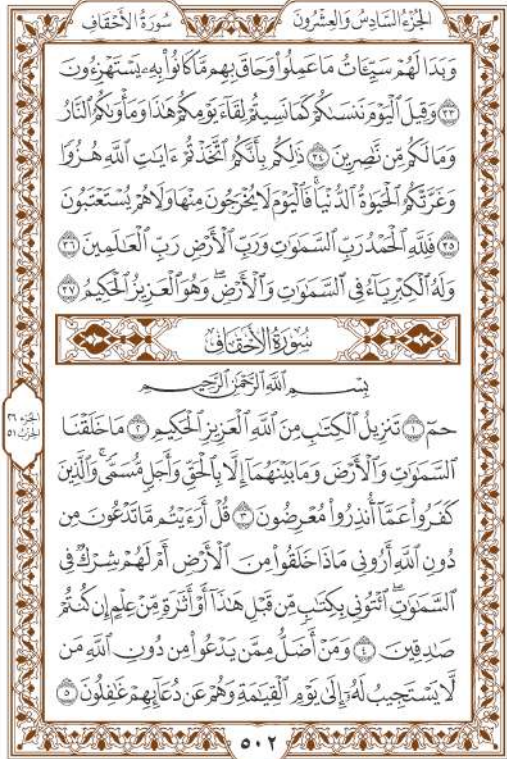 الجُزْءُ السَّادِسُ وَالعِشْرُونَ سُورَةُ الأَحْقَافِ
وَبَدَا لَهُمْ سَيِّـَٔاتُ مَا عَمِلُوا۟ وَحَاقَ بِهِم مَّا كَانُوا۟ بِهِۦ يَسْتَهْزِءُونَ
٣٣ وَقِيلَ ٱلْيَوْمَ نَنسَىٰكُمْ كَمَا نَسِيتُمْ لِقَآءَ يَوْمِكُمْ هَٰذَا وَمَأْوَىٰكُمُ ٱلنَّارُ
وَمَا لَكُم مِّن نَّٰصِرِينَ ٣٤ ذَٰلِكُم بِأَنَّكُمُ ٱتَّخَذْتُمْ ءَايَٰتِ ٱللَّهِ هُزُوًا
وَغَرَّتْكُمُ ٱلْحَيَوٰةُ ٱلدُّنْيَا ۚ فَٱلْيَوْمَ لَا يُخْرَجُونَ مِنْهَا وَلَا هُمْ يُسْتَعْتَبُونَ
٣٥ فَلِلَّهِ ٱلْحَمْدُ رَبِّ ٱلسَّمَٰوَٰتِ وَرَبِّ ٱلْأَرْضِ رَبِّ ٱلْعَٰلَمِينَ ٣٦
وَلَهُ ٱلْكِبْرِيَآءُ فِى ٱلسَّمَٰوَٰتِ وَٱلْأَرْضِ ۖ وَهُوَ ٱلْعَزِيزُ ٱلْحَكِيمُ ٣٧
سُورَةُ الأَحْقَافِ
بِسْمِ ٱللَّهِ ٱلرَّحْمَٰنِ ٱلرَّحِيمِ
حمٓ ١ تَنزِيلُ ٱلْكِتَٰبِ مِنَ ٱللَّهِ ٱلْعَزِيزِ ٱلْحَكِيمِ ٢ مَا خَلَقْنَا
ٱلسَّمَٰوَٰتِ وَٱلْأَرْضَ وَمَا بَيْنَهُمَآ إِلَّا بِٱلْحَقِّ وَأَجَلٍ مُّسَمًّى ۚ وَٱلَّذِينَ
كَفَرُوا۟ عَمَّآ أُنذِرُوا۟ مُعْرِضُونَ ٣ قُلْ أَرَءَيْتُم مَّا تَدْعُونَ مِن
دُونِ ٱللَّهِ أَرُونِى مَاذَا خَلَقُوا۟ مِنَ ٱلْأَرْضِ أَمْ لَهُمْ شِرْكٌ فِى
ٱلسَّمَٰوَٰتِ ۖ ٱئْتُونِى بِكِتَٰبٍ مِّن قَبْلِ هَٰذَآ أَوْ أَثَٰرَةٍ مِّنْ عِلْمٍ إِن كُنتُمْ
صَٰدِقِينَ ٤ وَمَنْ أَضَلُّ مِمَّن يَدْعُوا۟ مِن دُونِ ٱللَّهِ مَن
لَّا يَسْتَجِيبُ لَهُۥٓ إِلَىٰ يَوْمِ ٱلْقِيَٰمَةِ وَهُمْ عَن دُعَآئِهِمْ غَٰفِلُونَ ٥
الجزء ٢٦
الحزب ٥١
٥٠٢